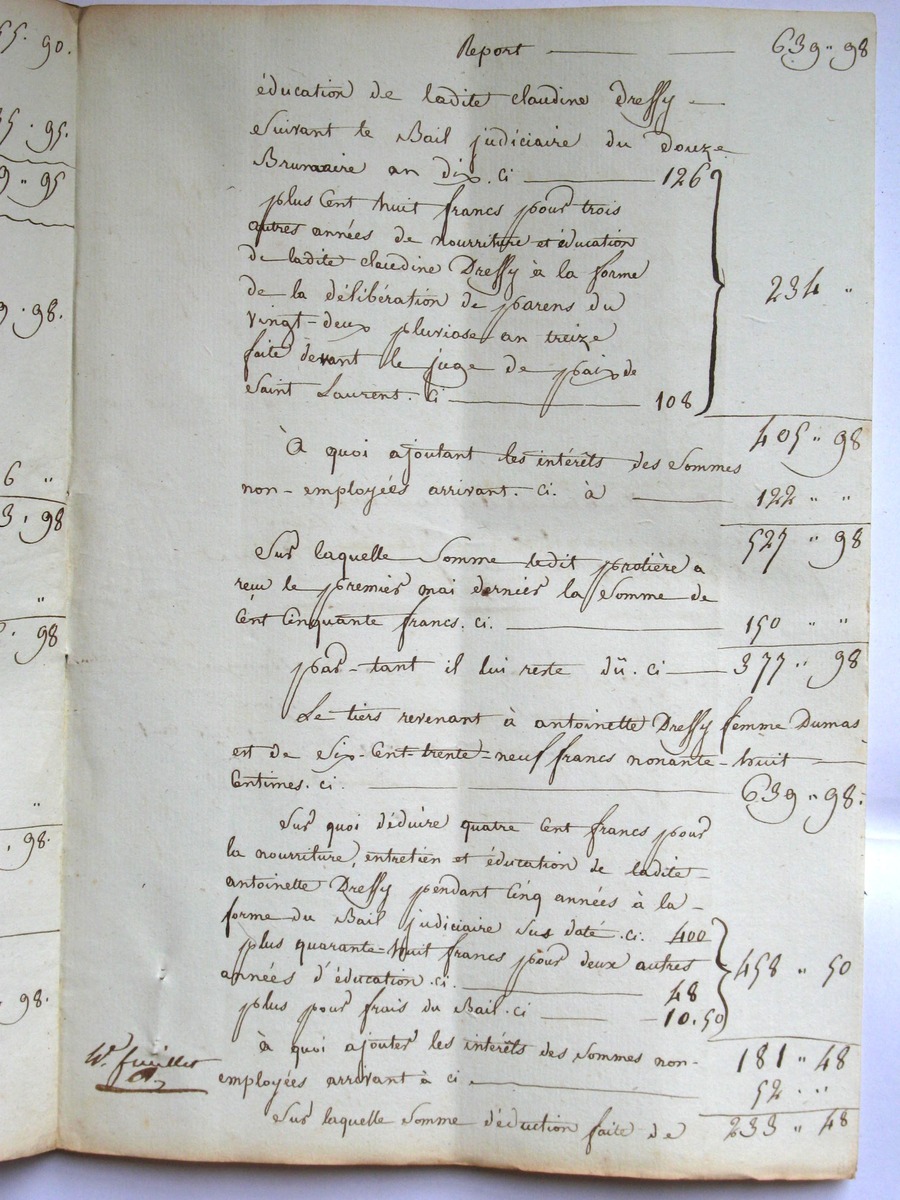 Report 639 " 98
éducation de ladite claudine Dressy
Suivant le Bail judiciaire du Douze
Brumaire an dix. Ci 126
plus Cent huit francs pour trois
autres années de nourriture et éducation
de ladite claudine Dressy à la forme
de la délibération de parens du
vingt-deux pluviose an treize 234 "
faite devant le juge de paix de
Saint Laurent. Ci 108
405 " 98
À quoi ajoutant les intérêts des Sommes
non-employées arrivant. Ci. à 122 " "
527 " 98
Sur laquelle Somme ledit protière a
reçu le premier mai dernier la Somme de
Cent Cinquante francs. ci. 150 " "
par-tant il lui reste dû. Ci 377 " 98
Le tiers revenant à antoinette Dressy femme Dumas
est de Six-Cent-trente-neuf francs nonante-huit
Centimes. ci. 639 " 98.
Sur quoi déduire quatre Cent francs pour
la nourriture, entretien et éducation de ladite
antoinette Dressy pendant Cinq années à la
forme du Bail judiciaire Sus daté. ci. 400
plus quarante-huit francs pour deux autres 458 " 50
années d'éducation. ci. 48
plus pour frais du Bail. ci 10.50
à quoi ajouter les intérêts des Sommes non- 181 " 48
employées arrivant à ci 52 " "
Sur laquelle Somme déduction faite de 233 " 48
feuillet
55. 90.
95.
9 " 95
9. 98.
6 "
3. 98
"
98
"
98.
98.